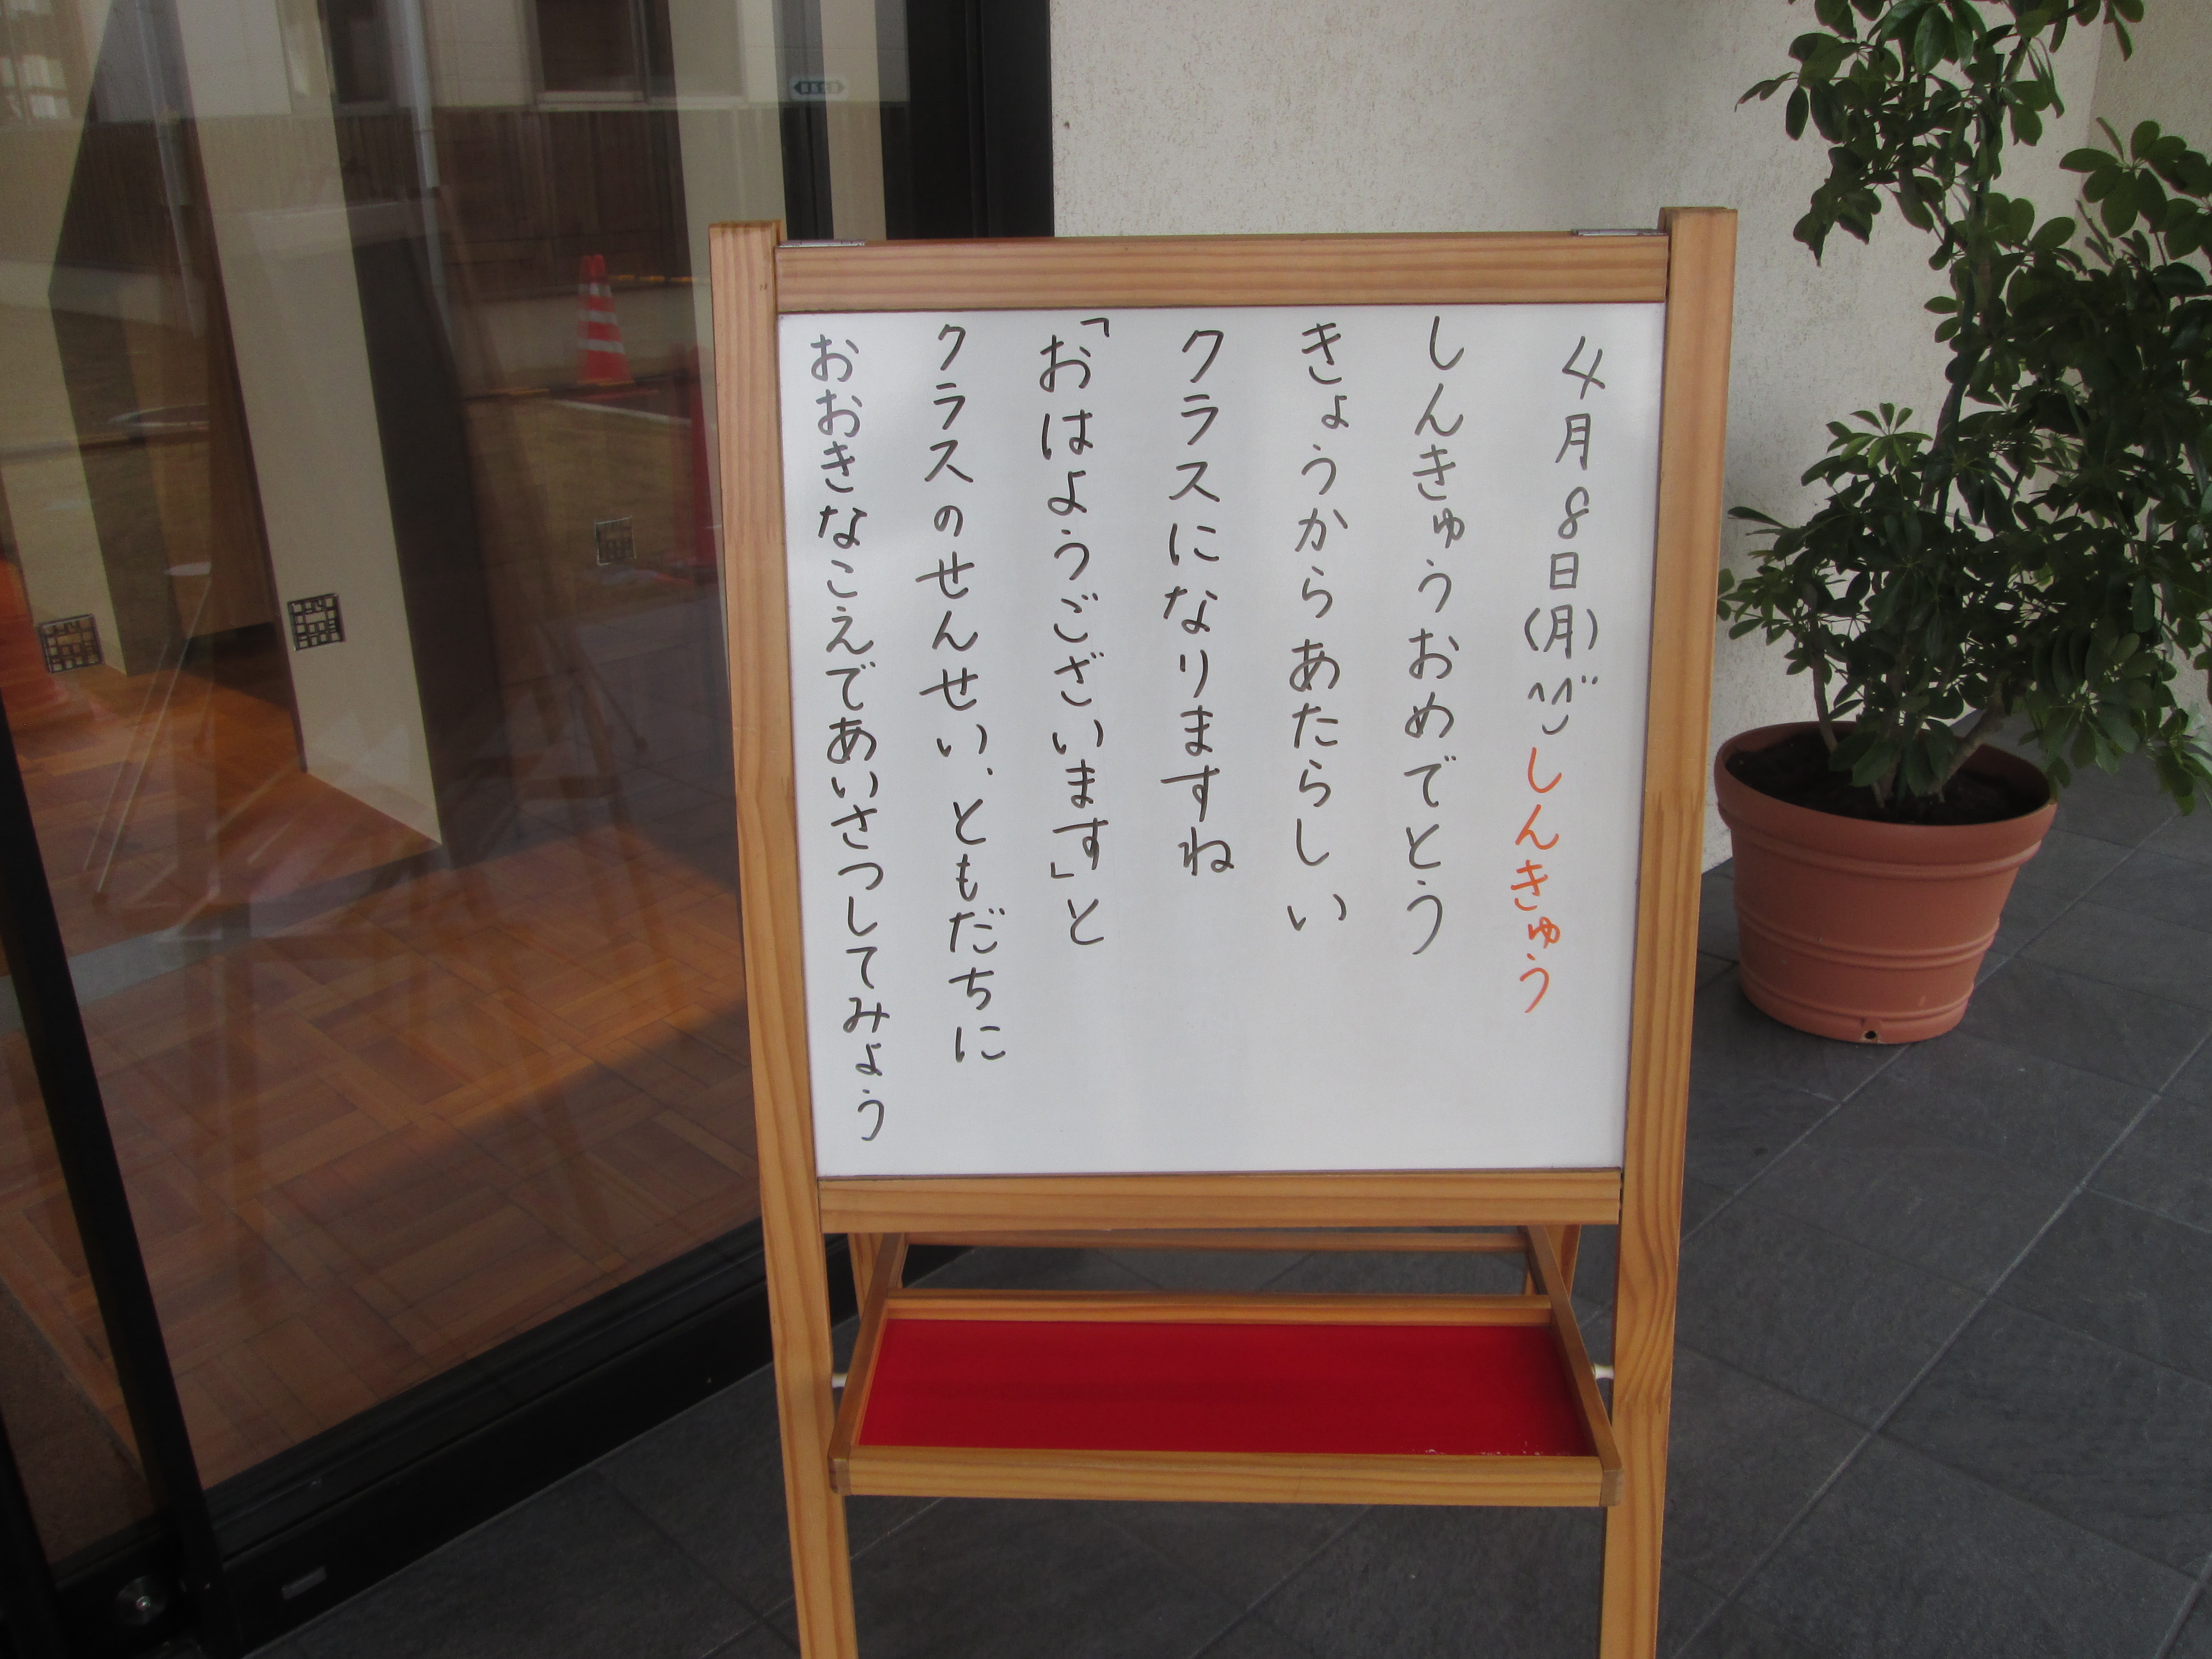 4月8日(月)しんきゅう
しんきゅうおめでとう
きょうからあたらしい
クラスになりますね
「おはようございます」と
クラスのせんせい、ともだちに
おおきなこえであいさつしてみよう